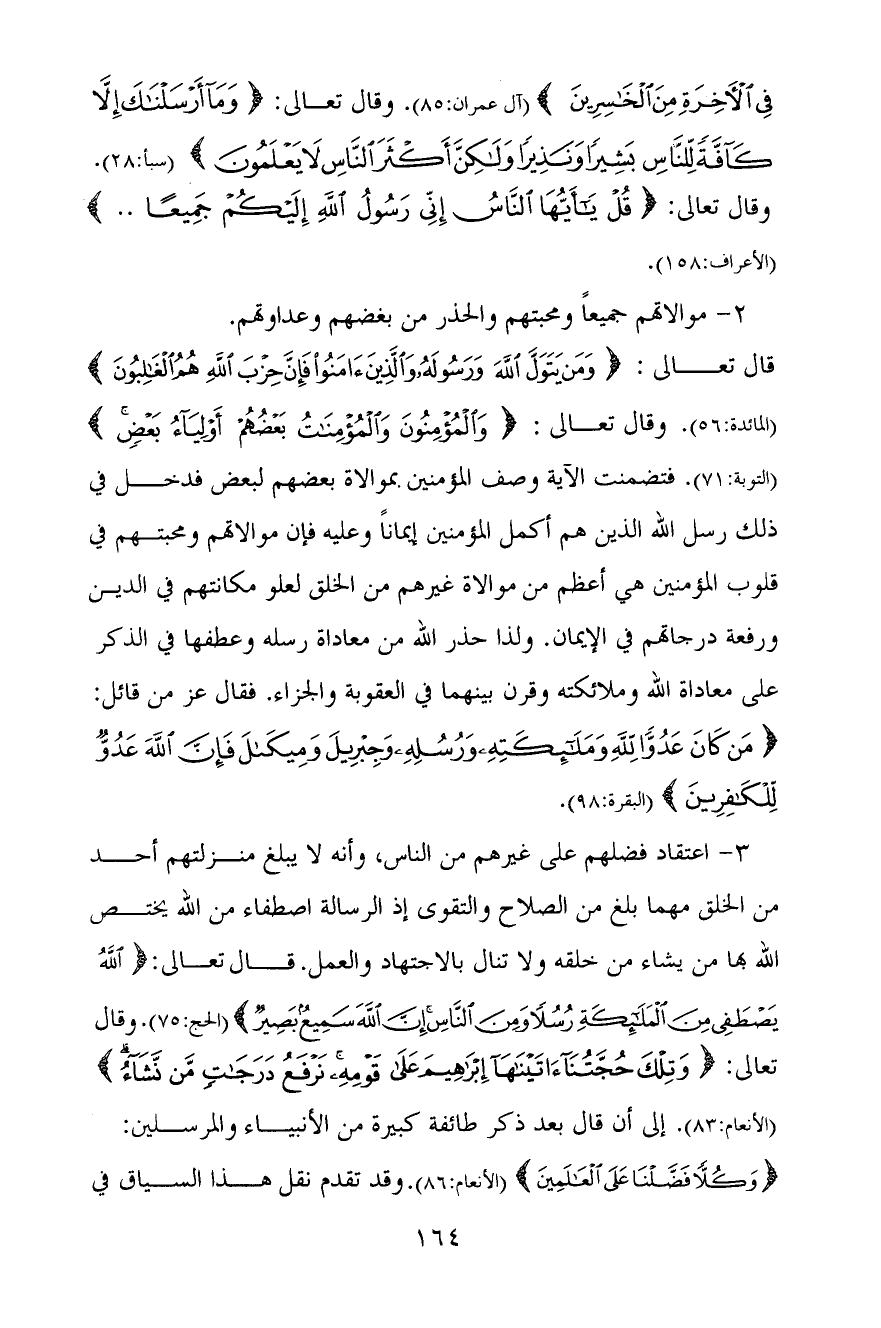 فِي ٱلْأَخِرَةِ مِنَ ٱلْخَٰسِرِينَ ﴾ (آل عمران:٨٥). وقال تعالى: ﴿ وَمَآ أَرْسَلْنَٰكَ إِلَّا
كَآفَّةً لِّلنَّاسِ بَشِيرًا وَنَذِيرًا وَلَٰكِنَّ أَكْثَرَ ٱلنَّاسِ لَا يَعْلَمُونَ ﴾ (سبأ:٢٨).
وقال تعالى: ﴿ قُلْ يَٰٓأَيُّهَا ٱلنَّاسُ إِنِّى رَسُولُ ٱللَّهِ إِلَيْكُمْ جَمِيعًا .. ﴾
(الأعراف:١٥٨).
٢- موالاتهم جميعاً ومحبتهم والحذر من بغضهم وعداوتهم.
قال تعالى : ﴿ وَمَن يَتَوَلَّ ٱللَّهَ وَرَسُولَهُۥ وَٱلَّذِينَ ءَامَنُوا۟ فَإِنَّ حِزْبَ ٱللَّهِ هُمُ ٱلْغَٰلِبُونَ ﴾
(المائدة:٥٦). وقال تعالى : ﴿ وَٱلْمُؤْمِنُونَ وَٱلْمُؤْمِنَٰتُ بَعْضُهُمْ أَوْلِيَآءُ بَعْضٍۚ ﴾
(التوبة:٧١). فتضمنت الآية وصف المؤمنين بموالاة بعضهم لبعض فدخل في
ذلك رسل الله الذين هم أكمل المؤمنين إيماناً وعليه فإن موالاتهم ومحبتهم في
قلوب المؤمنين هي أعظم من موالاة غيرهم من الخلق لعلو مكانتهم في الدين
ورفعة درجاتهم في الإيمان. ولذا حذر الله من معاداة رسله وعطفها في الذكر
على معاداة الله وملائكته وقرن بينهما في العقوبة والجزاء. فقال عز من قائل:
﴿ مَن كَانَ عَدُوًّا لِّلَّهِ وَمَلَٰٓئِكَتِهِۦ وَرُسُلِهِۦ وَجِبْرِيلَ وَمِيكَىٰلَ فَإِنَّ ٱللَّهَ عَدُوٌّ
لِّلْكَٰفِرِينَ ﴾ (البقرة:٩٨).
٣- اعتقاد فضلهم على غيرهم من الناس، وأنه لا يبلغ منزلتهم أحد
من الخلق مهما بلغ من الصلاح والتقوى إذ الرسالة اصطفاء من الله يختص
الله بها من يشاء من خلقه ولا تنال بالاجتهاد والعمل. قال تعالى: ﴿ ٱللَّهُ
يَصْطَفِى مِنَ ٱلْمَلَٰٓئِكَةِ رُسُلًا وَمِنَ ٱلنَّاسِۚ إِنَّ ٱللَّهَ سَمِيعٌۢ بَصِيرٌ ﴾ (الحج:٧٥). وقال
تعالى: ﴿ وَتِلْكَ حُجَّتُنَآ ءَاتَيْنَٰهَآ إِبْرَٰهِيمَ عَلَىٰ قَوْمِهِۦۚ نَرْفَعُ دَرَجَٰتٍ مَّن نَّشَآءُۗ ﴾
(الأنعام:٨٣). إلى أن قال بعد ذكر طائفة كبيرة من الأنبياء والمرسلين:
﴿ وَكُلًّا فَضَّلْنَا عَلَى ٱلْعَٰلَمِينَ ﴾ (الأنعام:٨٦). وقد تقدم نقل هذا السياق في
١٦٤